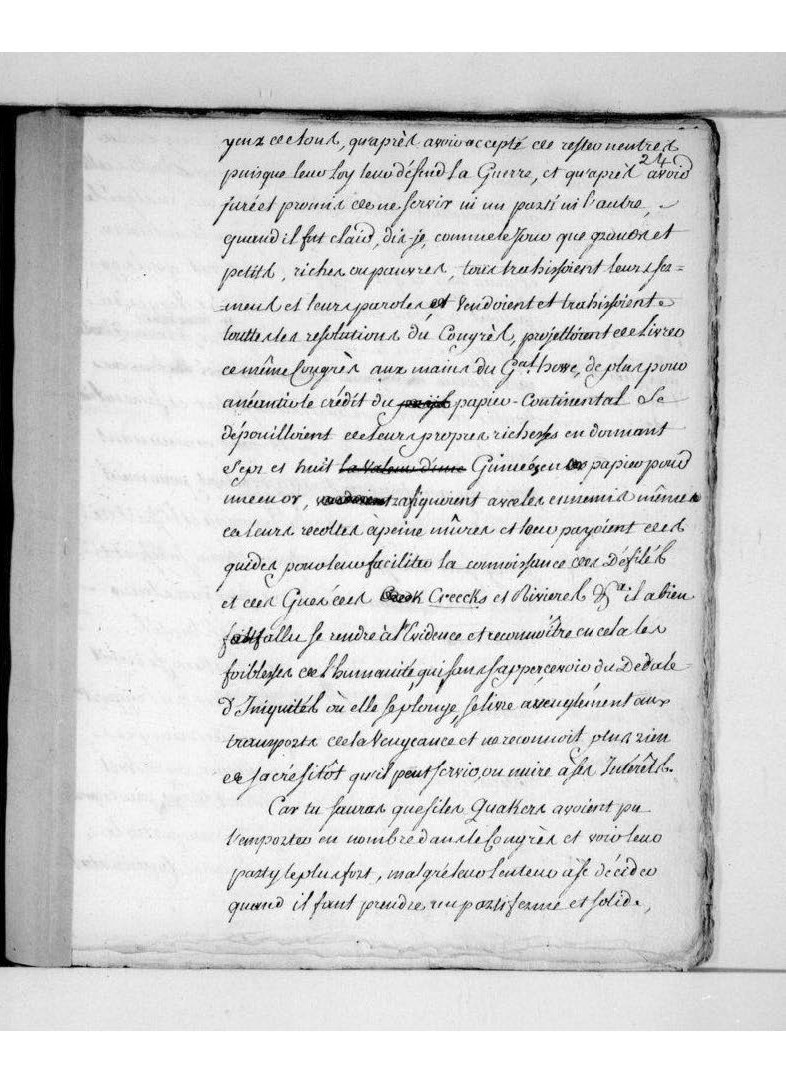 24
yeux de tous, qu'après avoir accepté de rester neutres
puisque leur Loy leur défend la Guerre, et qu'après avoir
juré et promis de ne servir ni un parti ni l'autre,
quand il fut clair, dis-je, comme le Jour que grands et
petits, riches ou pauvres, tous trahissoient leurs ser=
mens et leurs paroles et vendoient et trahissoient
touttes les resolutions du Congrès, projettèrent de Livrer
ce même Congrès aux mains du Gal. howe, de plus pour
anéantir le crédit du papier papier-Continental Se
dépouilloient de leurs propres richesses en donnant
Sept et huit la valeur d'une Guinées en papier pour
une en or, trafiquoient avec les ennemis mêmes
de leurs recoltes a peine mûres et leur payoient des
guides pour leur faciliter la connoissance des Défilés
et des Gués des Creek Creecks et Rivieres &a il a bien
fallu se rendre à l'Evidence et reconnoître en cela les
foiblesses de l'humanité, qui sans s'appercevoir du Dedale
d'Iniquités où elle se plonge, se livre aveuglément aux
transports de la Vengeance et ne reconnoit plus rien
de sacré sitôt qu'il peut servir, ou nuire à ses Intérêts.
Car tu sauras que si les Quakers avoient pu
l'emporter en nombre dans le Congrès et voir leur
party le plus fort, malgré leur lenteur à se décider
quand il faut prendre un parti ferme et solide,